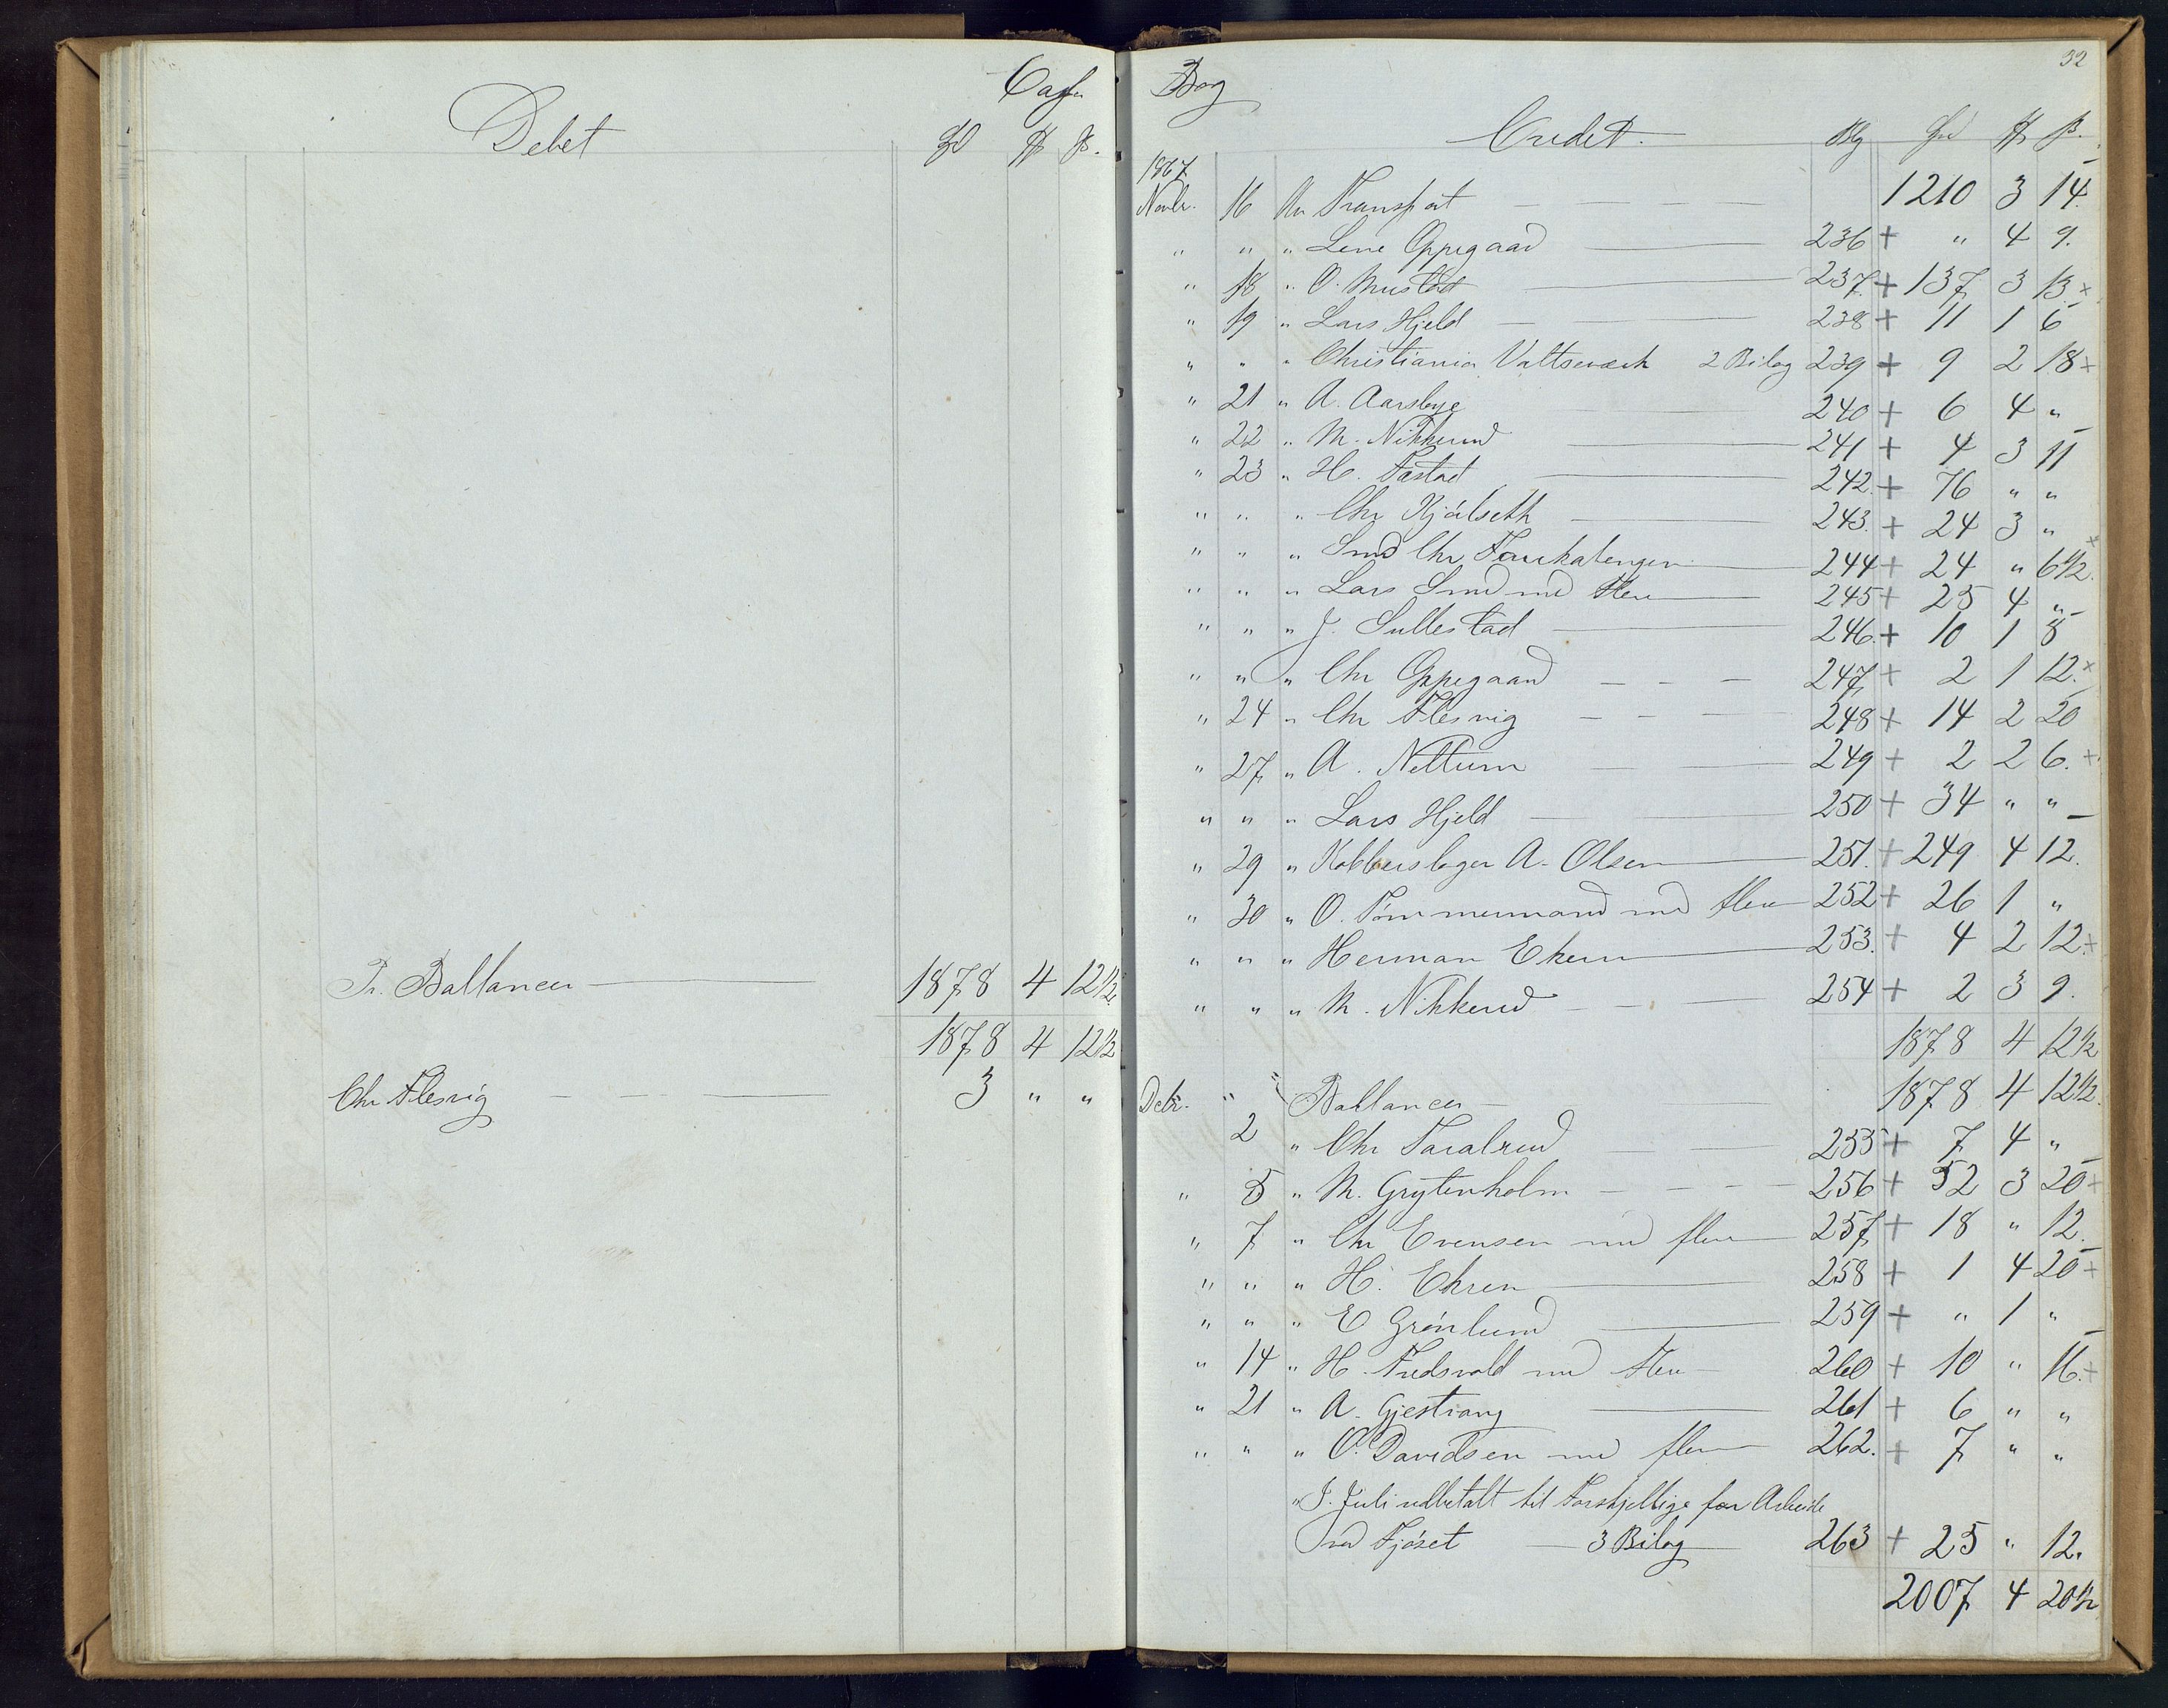 Cassa
Debet
Pr. Ballancen 1878 4 12 1/2
1878 4 12 1/2
Chr Flesvig 3 " "
Bog
32
Credit. Blg
1867
Novbr. 16 An Transport 1210 3 14.
" " " Lene Oppegaard 236 + " 4 9.
" 18 " O. Mustad 237. + 137 3 13. +
" 19 " Lars Hjeld 238 + 11 1 6
" " " Christiania Valtseværk 2 Bilag 239 + 9 2 18 +
" 21 " A. Aarsbye 240 + 6 4 "
" 22 " M. Nikkerud 241 + 4 3 11
" 23 " H. Fastad 242. + 76 " "
" " " Chr Kjölseth 243. + 24 3 "
" " " Smd Chr 244 + 24 " 6 1/2. +
" " " Lars Smd med Flere 245 + 25 4 "
" " " J. Sullestad 246. + 10 1 8
" " " Chr Oppegaard 247 + 2 1 12. +
" 24 " Chr Flesvig 248 + 14 2 20
" 27 " A. Nettum 249 + 2 2 6. +
" " " Lars Hjeld 250 + 34 " "
" 29 " Kobberslager A. Olsen 251. + 249 4 12.
" 30 " O. Tömmermand med flere 252 + 26 1 "
" " " Herman Ekern 253. + 4 2 12. +
" " " M. Nikkerud 254 + 2 3 9.
1878 4 12 1/2
Debr. " " Ballancen 1878 4 12 1/2.
2 " Chr Taralrud 255 + 7 4 "
" 5 " M. Grytenholm 256 + 52 3 20 +
" 7 " Chr Evensen med flere 257 + 18 " 12.
" " " H. Ekren 258 + 1 4 20 +
" " " E Grönlund 259 + " 1 "
" 14 " H. Fredsvold med Flere 260 + 10 " 16. +
" 21 " A. Gjestvang 261 + 6 " "
" " " O. Davidsen med flere 262. + 7 " "
" I. Juli udbetalt til Forskjellige for Arbeide
ved Fjöset 3 Bilag 263 + 25 " 12.
2007 4 20 1/2